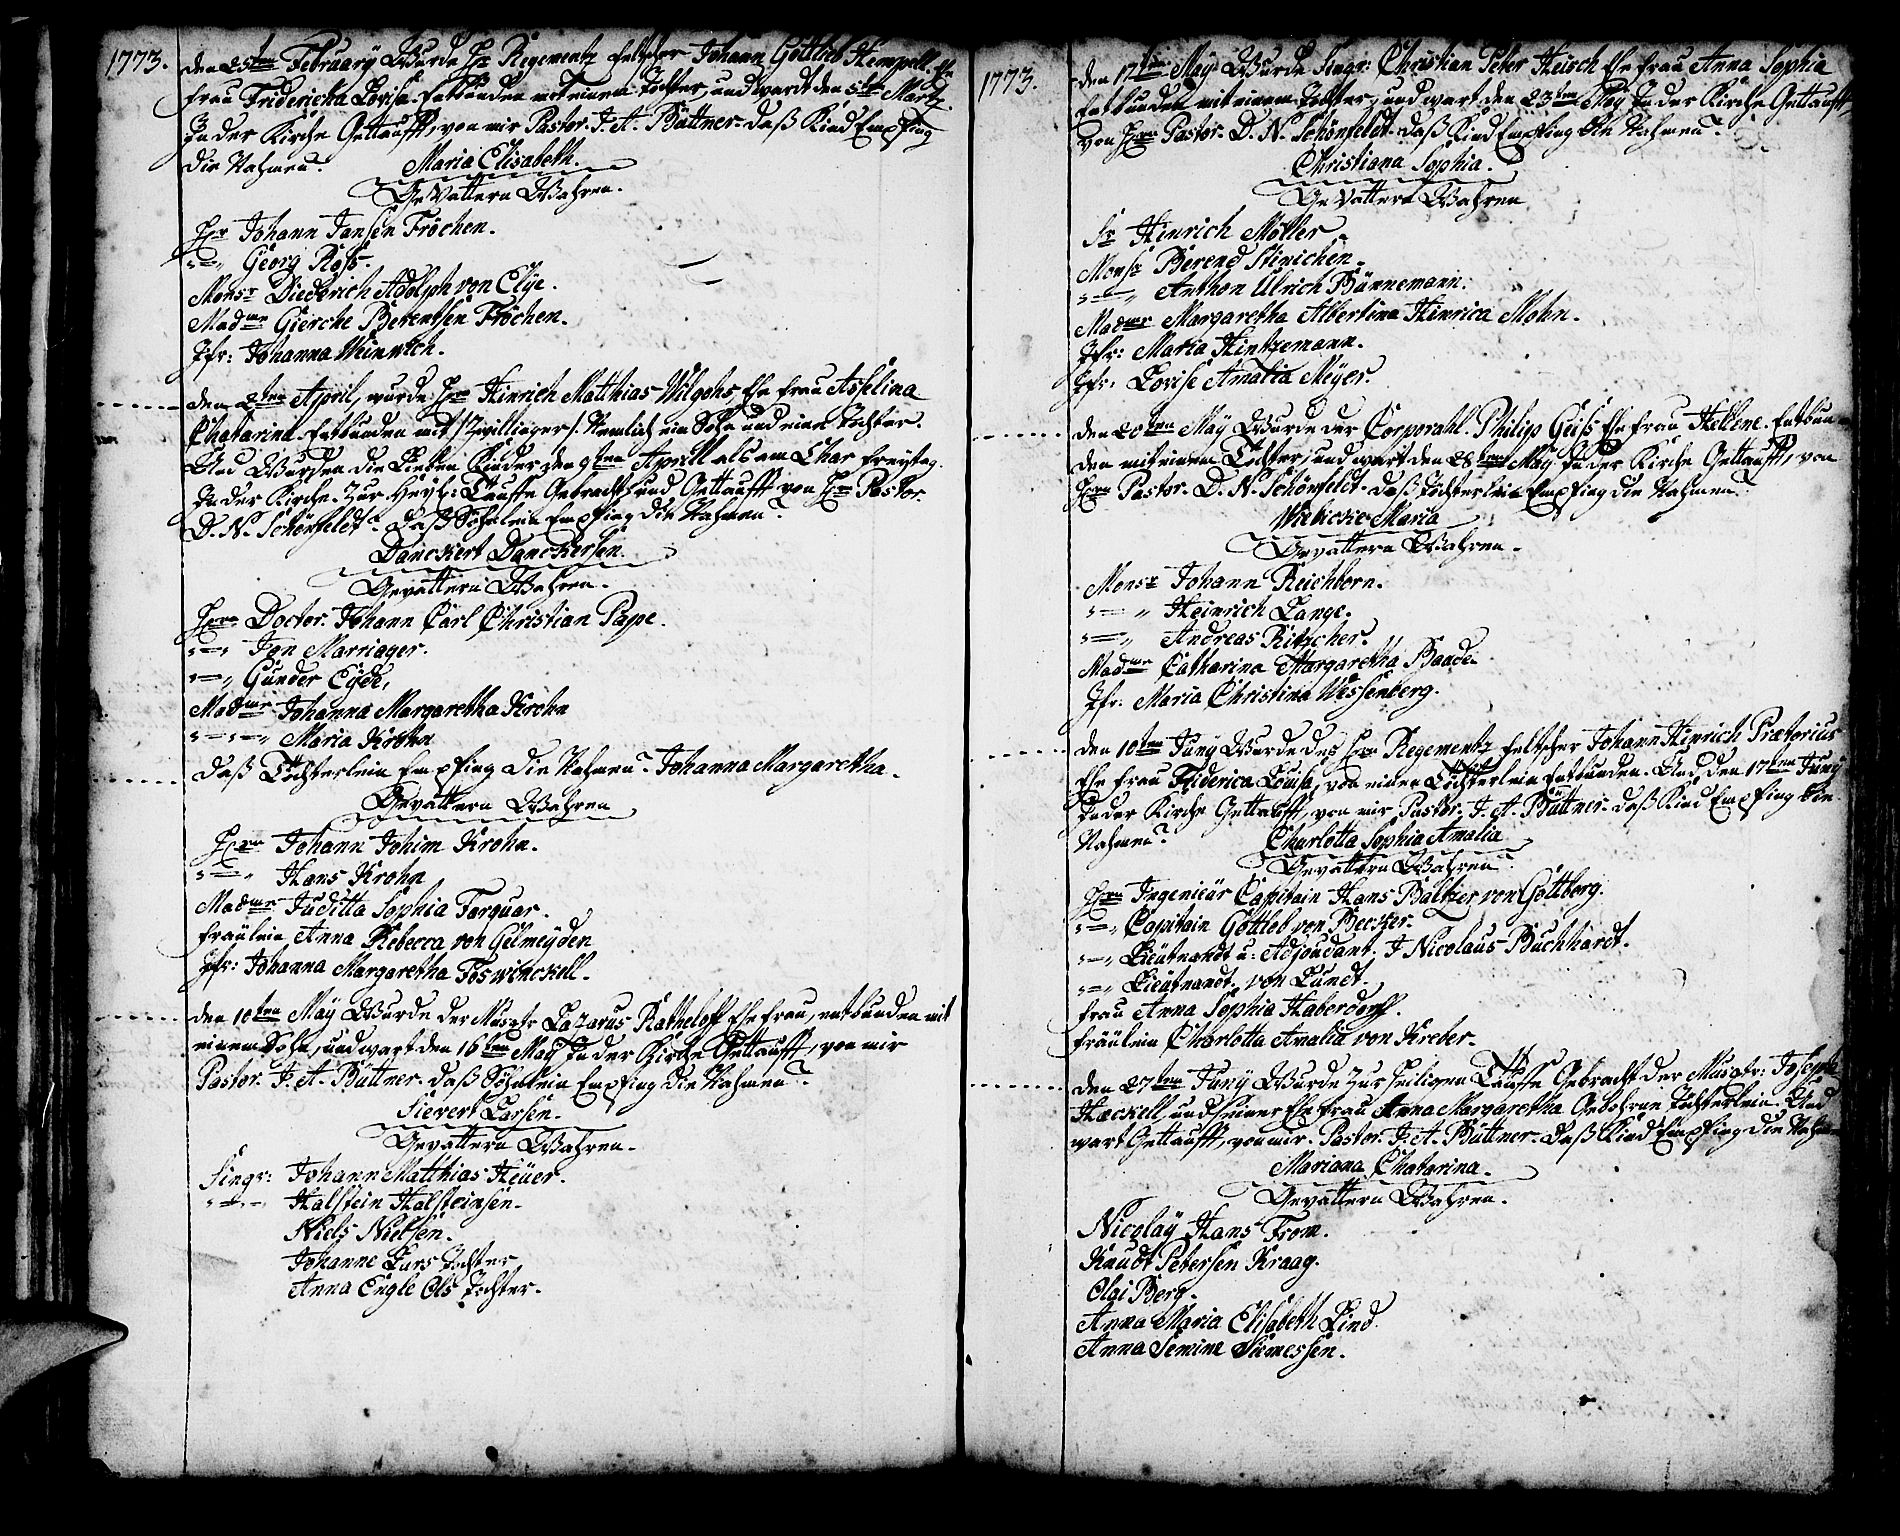 1773.
den 25ten February Wurde Hr Regementz feltscher Johann Gottlieb Hempell. Ehe
frau Fridericka Lovisa. Entbunden mit einem Tochter, und wardt den 5ten Martz
In der Kirche Gettaufft, von mir Pastor. J. A. Büttner. daß Kind Empfing
die Nahmen. Maria Elisabeth.
GeVattern Wahren.
Hr Johann Jansen Fröchen.
" Georg Roß.
Monsr Diederich Adolph von Elye.
Madme Giercke Berentsen Fröchen.
Jfr: Johanna Weinwich.
den 2ten April, wurde Hrn Hinrich Matthias Wilgens, Ehe frau Asselina
Chatarina. Entbunden mit /: Zwillinger :/ Nemlich ein Sohn und eine Tochter.
Und Wurden die Lieben Kinder den 9ten Aprill als am Char freytag.
In der Kirche. Zur Heyl: Tauffe Gebracht, und Gettaufft von Hrn Pastor
D. N. Schönfeldt. daß Söhnlein Empfing die Nahmen.
Danckert Danckersen
Gevattern Wahren.
Hrn Doctor. Johann Carl Christian Pape.
" Jon Marriager.
" Gunder Eyde,
Madme Johanna Margaretha Krohn
" Maria Krohn
daß Töchterlein Empfing die Nahmen. Johanna Margaretha.
Gevattern Wahren
Hrn Johann Johim Krohn.
" Hans Krohn
Madme Juditta Sophia Farquar.
fräulein Anna Rebecca von Gelmeyden
Jfr: Johanna Margaretha Foswinckell.
den 10ten May Wurde der Musqtr Lazarus Ratheloff Ehe frau, entbunden mit
einem Sohn, und wart den 16ten May In der Kirche Gettaufft, von mir
Pastor. J. A. Büttner. daß Söhnlein Empfing die Nahmen.
Sievert Larsen.
Gevattern Wahren.
Singr: Johann Matthias Heüer.
" Halstein Halsteinsen.
Niels Nielsen.
Johanne Lars Tochter
Anna Engle Ols Tochter.
1773.
den 17ten May Wurde Singr: Christian Peter Heisch Ehe frau Anna Sophia
Entbunden mit einem Tochter, und wart den 23ten May In der Kirche Gettaufft,
von Hrn Pastor. D. N. Schönfeldt. daß Kind Empfing die Nahmen.
Christiana Sophia.
GeVattern Wahren
Sr Hinrich Möller.
Monsr Berend Stinichen.
" Anthon Ulrich Bünnemann.
Madme Margaretha Albertina Hinrica Mohn.
Jfr: Maria Hintzemann.
Jfr: Lovise Amalia Meyer.
den 20ten May Wurde der Corporahl. Philip Geiß Ehe frau Hellene. Entbun-
den mit einem Tochter, und wart den 28ten May In der Kirche Gettaufft, von
Hrn Pastor. D. N. Schönfeldt. daß Töchterlein Empfing die Nahmen
Wiebicke Maria
Gevattern Wahren.
Monsr Johann Reichborn.
" Heinrich Lange.
" Andreas Kitzscher.
Madme Catharina Margaretha Baade.
Jfr: Maria Christina Wessenberg.
den 10ten Juny Wurde des Hrn Regementz feltscher Johann Hinrich Prætorius
Ehe frau Friderica Louisa, von einem Töchterlein Entbunden. Und den 17ten Juny
In der Kirche Gettaufft, von mir Pastor. J. A. Büttner. daß Kind Empfing die
Nahmen. Charlotta Sophia Amalia
Gevattern Wahren.
Hrn Ingenieür Capitain Hans Baltzer von Göttberg.
" Capitain Gottlob von Becker.
" Lieutnandt u: Adjoudant. J Nicolaus Buchhardt.
" Lieutnandt. von Lundt.
frau Anna Sophia Haberdorff.
fräulein Charlotta Amalia von Kreber.
den 27ten Juny Wurde zur heiligen Tauffe Gebracht der Musqtr: Joseph
Hæckell, und seiner Ehe frau Anna Margaretha Gebohrne Töchterlein. Und
wart Gettaufft, von mir. Pastor. J. A. Büttner. daß Kind Empfing die Nahmen
Mariana Chatarina.
Gevattern Wahren.
Nicolay Hans From.
Knudt Petersen Kraag.
Olai Berg.
Anna Maria Elisabeth Lind
Anna Semine Siemessen.